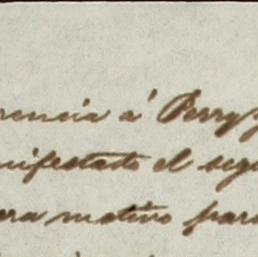 rencia á Perry
nifestado el segu
era motivo para